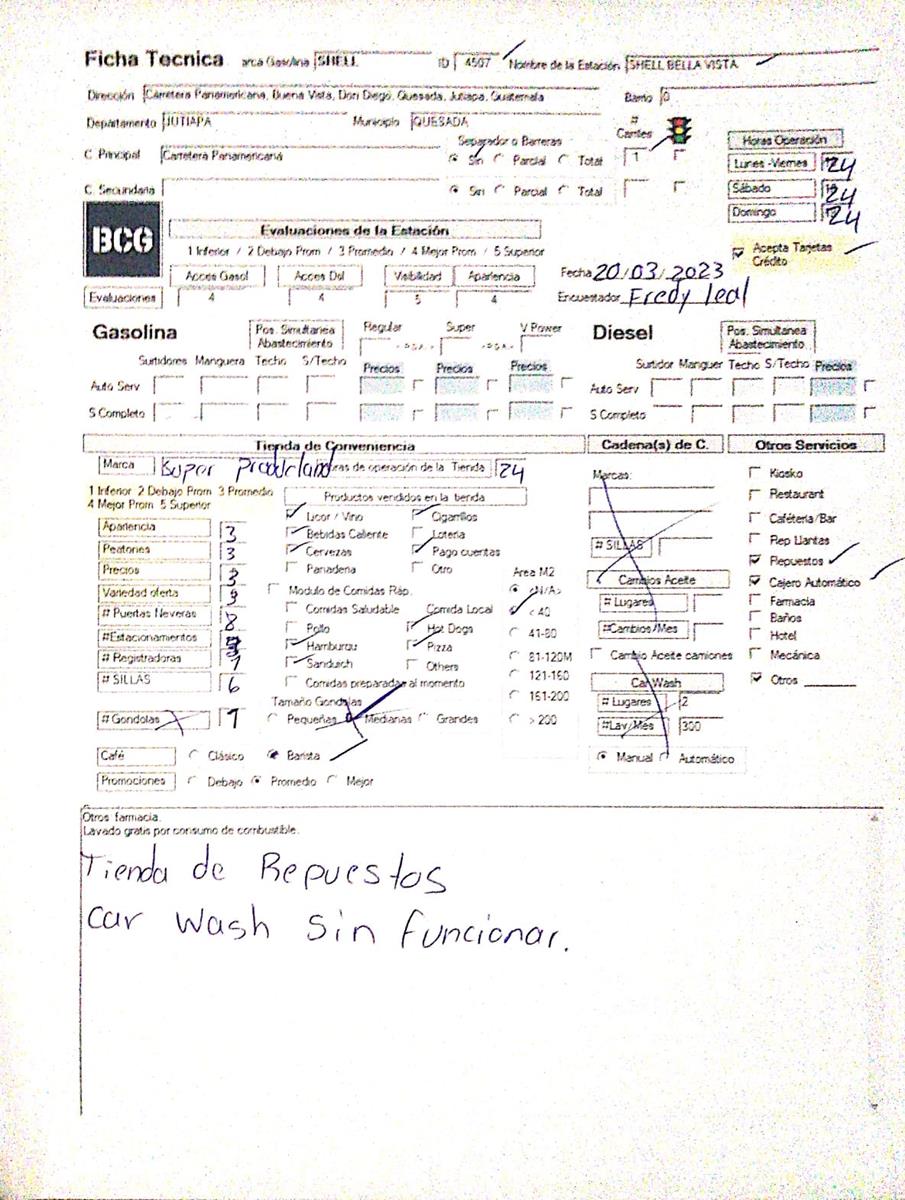 Ficha Tecnica arca Gasolina SHELL ID 4507 Nombre de la Estación SHELL BELLA VISTA
Dirección Carretera Panamericana, Buena Vista, Don Diego, Quesada, Jutiapa, Guatemala Barrio 0
Departamento JUTIAPA Municipio QUESADA # Carriles
C. Principal Carretera Panamericana Separador o Barreras Sin Parcial Total 1
C. Secundaria Sin Parcial Total
Horas Operación
Lunes -Viernes 24
Sábado 24
Domingo 24
Acepta Tarjetas Crédito
BCG
Evaluaciones de la Estación
1 Inferior / 2 Debajo Prom / 3 Promedio / 4 Mejor Prom / 5 Superior
Acces Gasol Acces Dsl Visibilidad Apariencia
Evaluaciones 4 4 5 4
Fecha 20/03/2023
Encuestador Fredy Leal
Gasolina Pos. Simultanea Abastecimiento Regular Super V Power
Surtidores Manguera Techo S/Techo Precios Precios Precios
Auto Serv
S Completo
Diesel Pos. Simultanea Abastecimiento
Surtidor Manguer Techo S/Techo Precios
Auto Serv
S Completo
Tienda de Conveniencia
Marca Super Productano oras de operación de la Tienda 24
1 Inferior 2 Debajo Prom 3 Promedio
4 Mejor Prom 5 Superior
Apariencia 3
Peatones 3
Precios 3
Variedad oferta
# Puertas Neveras 8
#Estacionamientos
# Registradoras 1
# SILLAS 6
#Gondolas 1
Productos vendidos en la tienda
Licor / Vino Cigarrillos
Bebidas Caliente Loteria
Cervezas Pago cuentas
Panaderia Otro
Modulo de Comidas Ráp.
Comidas Saludable Comida Local
Pollo Hot Dogs
Hamburgu Pizza
Sandwich Others
Comidas preparadas al momento
Tamaño Gondolas
Pequeñas Medianas Grandes
Area M2
<N/A>
< 40
41-80
81-120M
121-160
161-200
> 200
Café Clásico Barista
Promociones Debajo Promedio Mejor
Cadena(s) de C.
Marcas:
# SILLAS
Cambios Aceite
# Lugares
#Cambios/Mes
Cambio Aceite camiones
Car Wash
# Lugares 2
#Lav/Mes 300
Manual Automático
Otros Servicios
Kiosko
Restaurant
Caféteria/Bar
Rep Llantas
Repuestos
Cajero Automático
Farmacia
Baños
Hotel
Mecánica
Otros
Otros farmacia.
Lavado gratis por consumo de combustible.
Tienda de Repuestos
Car Wash sin funcionar.